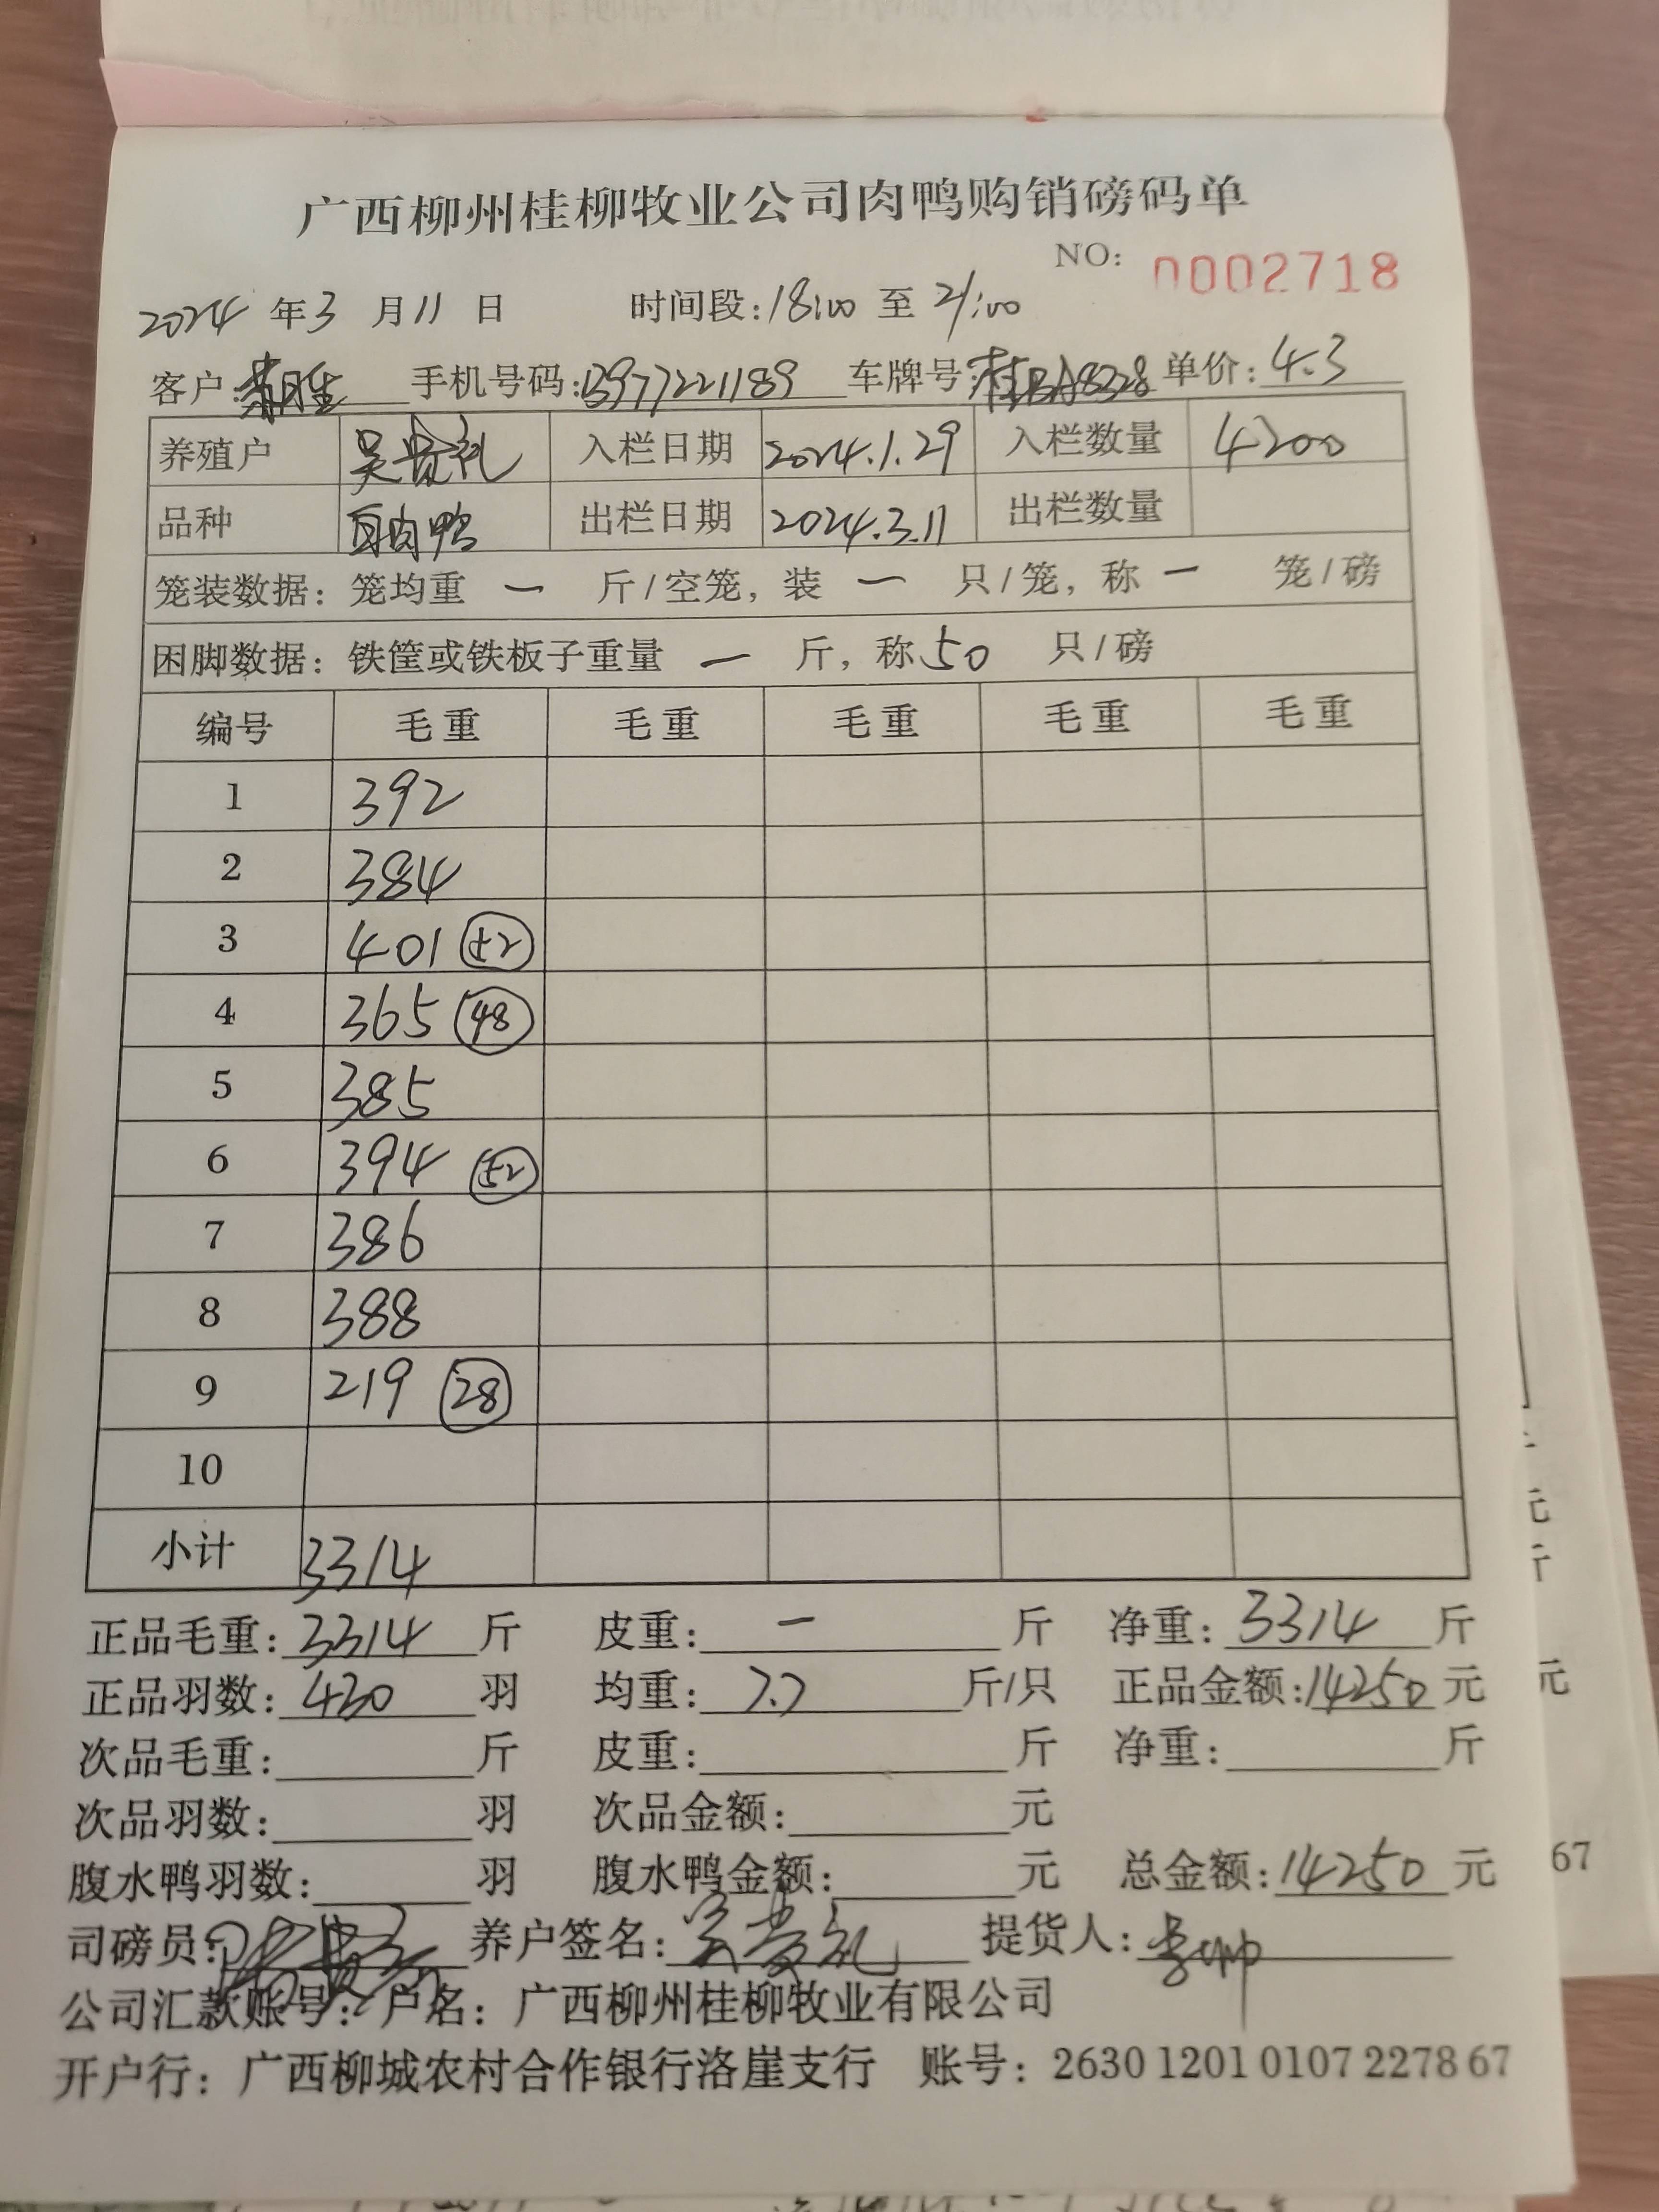 广西柳州桂柳牧业公司肉鸭购销磅码单
NO: 0002718
2024 年 3 月 11 日 时间段: 18:00 至 21:00
客户: 手机号码: 13977221189 车牌号: 桂BA8328 单价: 4.3
养殖户 吴贵礼 入栏日期 2024.1.29 入栏数量 4200
品种 白肉鸭 出栏日期 2024.3.11 出栏数量
笼装数据: 笼均重 一 斤/空笼, 装 一 只/笼, 称 一 笼/磅
困脚数据: 铁筐或铁板子重量 一 斤, 称 50 只/磅
编号 毛重 毛重 毛重 毛重 毛重
1 392
2 384
3 401 52
4 365 48
5 385
6 394 52
7 386
8 388
9 219 28
10
小计 3314
正品毛重: 3314 斤 皮重: 一 斤 净重: 3314 斤
正品羽数: 430 羽 均重: 7.7 斤/只 正品金额: 14250 元
次品毛重: 斤 皮重: 斤 净重: 斤
次品羽数: 羽 次品金额: 元
腹水鸭羽数: 羽 腹水鸭金额: 元 总金额: 14250 元
司磅员: 养户签名: 吴贵礼 提货人:
公司汇款账号: 户名: 广西柳州桂柳牧业有限公司
开户行: 广西柳城农村合作银行洛崖支行 账号: 2630 1201 0107 2278 67
元
斤
元
67